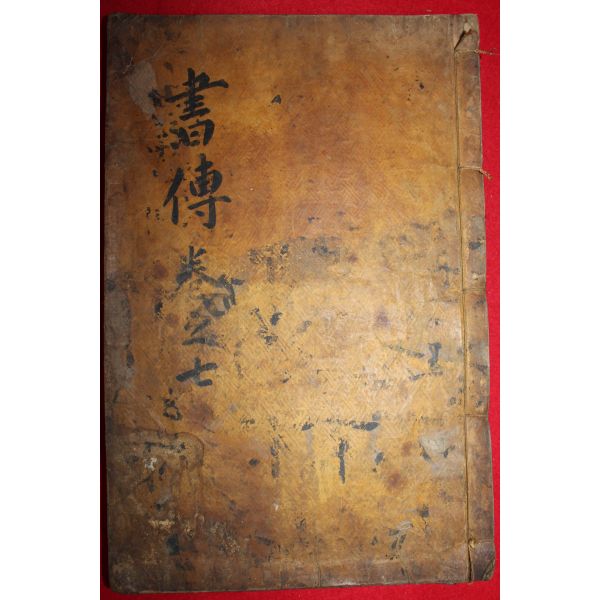 書傳 卷之七